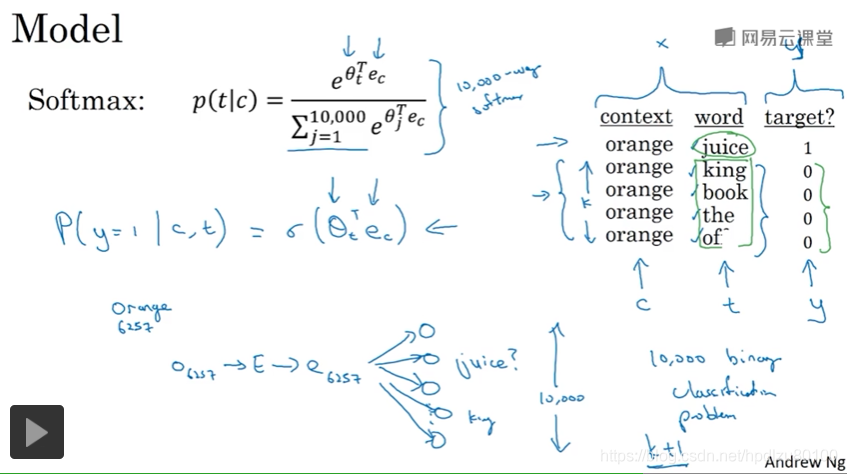 Model
网易云课堂
Softmax: p(t|c) = e^{θ_t^T e_c} / ∑_{j=1}^{10,000} e^{θ_j^T e_c}
10,000-way
softmax
x
y
context word target?
orange juice 1
orange king 0
orange book 0
orange the 0
orange of 0
k
c t y
P(y=1 | c,t) = σ(θ_t^T e_c) ←
Orange
6257
O_6257 → E → e_6257
juice?
king
10,000
10,000 binary
classification
problem
k+1
Andrew Ng